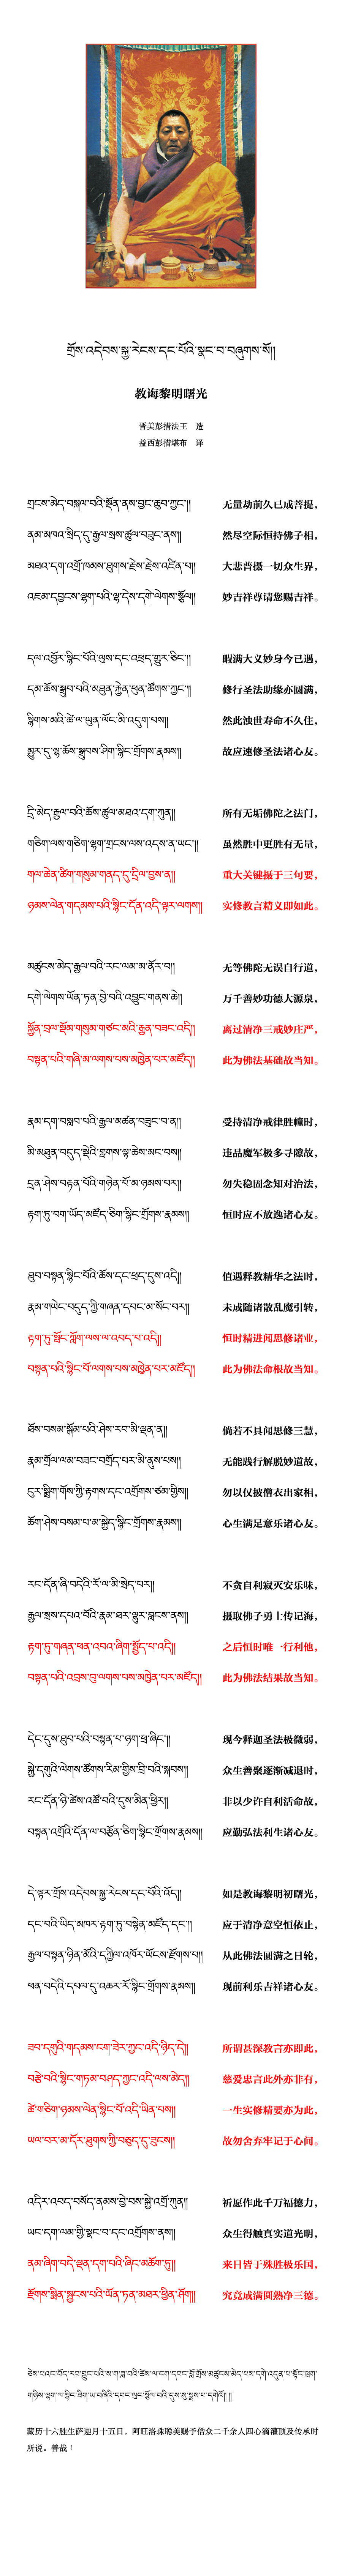 གྲོས་འདེབས་སྐྱ་རེངས་དང་པོའི་སྣང་བ་བཞུགས་སོ།།
教诲黎明曙光
晋美彭措法王　造
益西彭措堪布　译
གྲངས་མེད་བསྐལ་བའི་སྔོན་ནས་བྱང་ཆུབ་ཀྱང་།། 无量劫前久已成菩提，
ནམ་མཁའ་སྲིད་དུ་རྒྱལ་སྲས་ཚུལ་བཟུང་ནས།། 然尽空际恒持佛子相，
མཐའ་དག་འགྲོ་ཁམས་ཐུགས་རྗེས་རྗེས་འཛིན་པ།། 大悲普摄一切众生界，
འཇམ་དབྱངས་ལྷག་པའི་ལྷ་དེས་དགེ་ལེགས་སྩོལ།། 妙吉祥尊请您赐吉祥。
དལ་འབྱོར་སྙིང་པོའི་ལུས་དང་འཕྲད་གྱུར་ཅིང་།། 暇满大义妙身今已遇，
དམ་ཆོས་སྒྲུབ་པའི་མཐུན་རྐྱེན་ཕུན་ཚོགས་ཀྱང་།། 修行圣法助缘亦圆满，
སྙིགས་མའི་ཚེ་ལ་ཡུན་ལོང་མི་འདུག་པས།། 然此浊世寿命不久住，
མྱུར་དུ་ལྷ་ཆོས་སྒྲུབས་ཤིག་སྙིང་གྲོགས་རྣམས།། 故应速修圣法诸心友。
དྲི་མེད་རྒྱལ་བའི་ཆོས་ཚུལ་མཐའ་དག་ཀུན།། 所有无垢佛陀之法门，
གཅིག་ལས་གཅིག་ལྷག་གྲངས་ལས་འདས་ན་ཡང་།། 虽然胜中更胜有无量，
གལ་ཆེན་ཚིག་གསུམ་གནད་དུ་དྲིལ་བྱས་ན།། 重大关键摄于三句要，
ཉམས་ལེན་གདམས་པའི་སྙིང་དོན་འདི་ལྟར་ལགས།། 实修教言精义即如此。
མཚུངས་མེད་རྒྱལ་བའི་རང་ལམ་མ་ནོར་བ།། 无等佛陀无误自行道，
དགེ་ལེགས་ཡོན་ཏན་བྱེ་བའི་འབྱུང་གནས་ཆེ།། 万千善妙功德大源泉，
སྐྱོན་བྲལ་སྡོམ་གསུམ་གཙང་མའི་རྒྱན་བཟང་འདི།། 离过清净三戒妙庄严，
བསྟན་པའི་གཞི་མ་ལགས་པས་མཁྱེན་པར་མཛོད།། 此为佛法基础故当知。
རྣམ་དག་བསླབ་པའི་རྒྱལ་མཚན་བཟུང་བ་ན།། 受持清净戒律胜幢时，
མི་མཐུན་བདུད་སྡེའི་གླགས་ལྟ་ཆེས་མང་བས།། 违品魔军极多寻隙故，
དྲན་ཤེས་བརྟན་པོའི་གཉེན་པོ་མ་ཉམས་པར།། 勿失稳固念知对治法，
རྟག་ཏུ་བག་ཡོད་མཛོད་ཅིག་སྙིང་གྲོགས་རྣམས།། 恒时应不放逸诸心友。
ཐུབ་བསྟན་སྙིང་པོའི་ཆོས་དང་ཕྲད་དུས་འདི།། 值遇释教精华之法时，
རྣམ་གཡེང་བདུད་ཀྱི་གཞན་དབང་མ་སོང་བར།། 未成随诸散乱魔引转，
རྟག་ཏུ་སྦྱོང་ཀློག་ལས་ལ་འབད་པ་འདི།། 恒时精进闻思修诸业，
བསྟན་པའི་སྙིང་པོ་ལགས་པས་མཁྱེན་པར་མཛོད།། 此为佛法命根故当知。
ཐོས་བསམ་སྒོམ་པའི་ཤེས་རབ་མི་ལྡན་ན།། 倘若不具闻思修三慧，
རྣམ་གྲོལ་ལམ་བཟང་བགྲོད་པར་མི་ནུས་པས།། 无能践行解脱妙道故，
ངུར་སྨྲིག་གོས་ཀྱི་རྟགས་དང་འགྲོགས་ཙམ་གྱིས།། 勿以仅披僧衣出家相，
ཆོག་ཤེས་བསམ་པ་མ་སྐྱེད་སྙིང་གྲོགས་རྣམས།། 心生满足意乐诸心友。
རང་དོན་ཞི་བདེའི་རོ་ལ་མི་སྲེད་པར།། 不贪自利寂灭安乐味，
རྒྱལ་སྲས་དཔའ་བོའི་རྣམ་ཐར་ལྷུར་བླངས་ནས།། 摄取佛子勇士传记海，
རྟག་ཏུ་གཞན་ཕན་འབའ་ཞིག་སྤྱོད་པ་འདི།། 之后恒时唯一行利他，
བསྟན་པའི་འབྲས་བུ་ལགས་པས་མཁྱེན་པར་མཛོད།། 此为佛法结果故当知。
དེང་དུས་ཐུབ་པའི་བསྟན་པ་ཉག་ཕྲ་ཞིང་།། 现今释迦圣法极微弱，
སྐྱེ་དགུའི་ལེགས་ཚོགས་རིམ་གྱིས་བྲི་བའི་སྐབས།། 众生善聚逐渐减退时，
རང་དོན་ཉི་ཚེས་འཚོ་བའི་དུས་མིན་ཕྱིར།། 非以少许自利活命故，
བསྟན་འགྲོའི་དོན་ལ་བརྩོན་ཅིག་སྙིང་གྲོགས་རྣམས།། 应勤弘法利生诸心友。
དེ་ལྟར་གྲོས་འདེབས་སྐྱ་རེངས་དང་པོའི་འོད།། 如是教诲黎明初曙光，
དང་བའི་ཡིད་མཁར་རྟག་ཏུ་བསྟེན་མཛོད་དང་།། 应于清净意空恒依止，
རྒྱལ་བསྟན་ཉིན་མོའི་དཀྱིལ་འཁོར་ཡོངས་རྫོགས་པ།། 从此佛法圆满之日轮，
ཕན་བདེའི་དཔལ་དུ་འཆར་རོ་སྙིང་གྲོགས་རྣམས།། 现前利乐吉祥诸心友。
ཟབ་དགུའི་གདམས་ངག་ཟེར་ཀྱང་འདི་ཉིད་དེ།། 所谓甚深教言亦即此，
བརྩེ་བའི་སྙིང་གཏམ་བཤད་ཀྱང་འདི་ལས་མེད།། 慈爱忠言此外亦非有，
ཚེ་གཅིག་ཉམས་ལེན་སྙིང་པོ་འདི་ཡིན་པས།། 一生实修精要亦为此，
ཡལ་བར་མ་དོར་ཐུགས་ཀྱི་བཅུད་དུ་ཟུངས།། 故勿舍弃牢记于心间。
འདིར་འབད་བསོད་ནམས་བྱེ་བས་སྐྱེ་འགྲོ་ཀུན།། 祈愿作此千万福德力，
ཡང་དག་ལམ་གྱི་སྣང་བ་དང་འགྲོགས་ནས།། 众生得触真实道光明，
ནམ་ཞིག་བདེ་ལྡན་དག་པའི་ཞིང་མཆོག་ཏུ།། 来日皆于殊胜极乐国，
རྫོགས་སྨིན་སྦྱངས་པའི་ཡོན་ཏན་མཐར་ཕྱིན་ཤོག། 究竟成满圆熟净三德。
藏历十六胜生萨迦月十五日，阿旺洛珠聪美赐予僧众二千余人四心滴灌顶及传承时
所说。善哉！